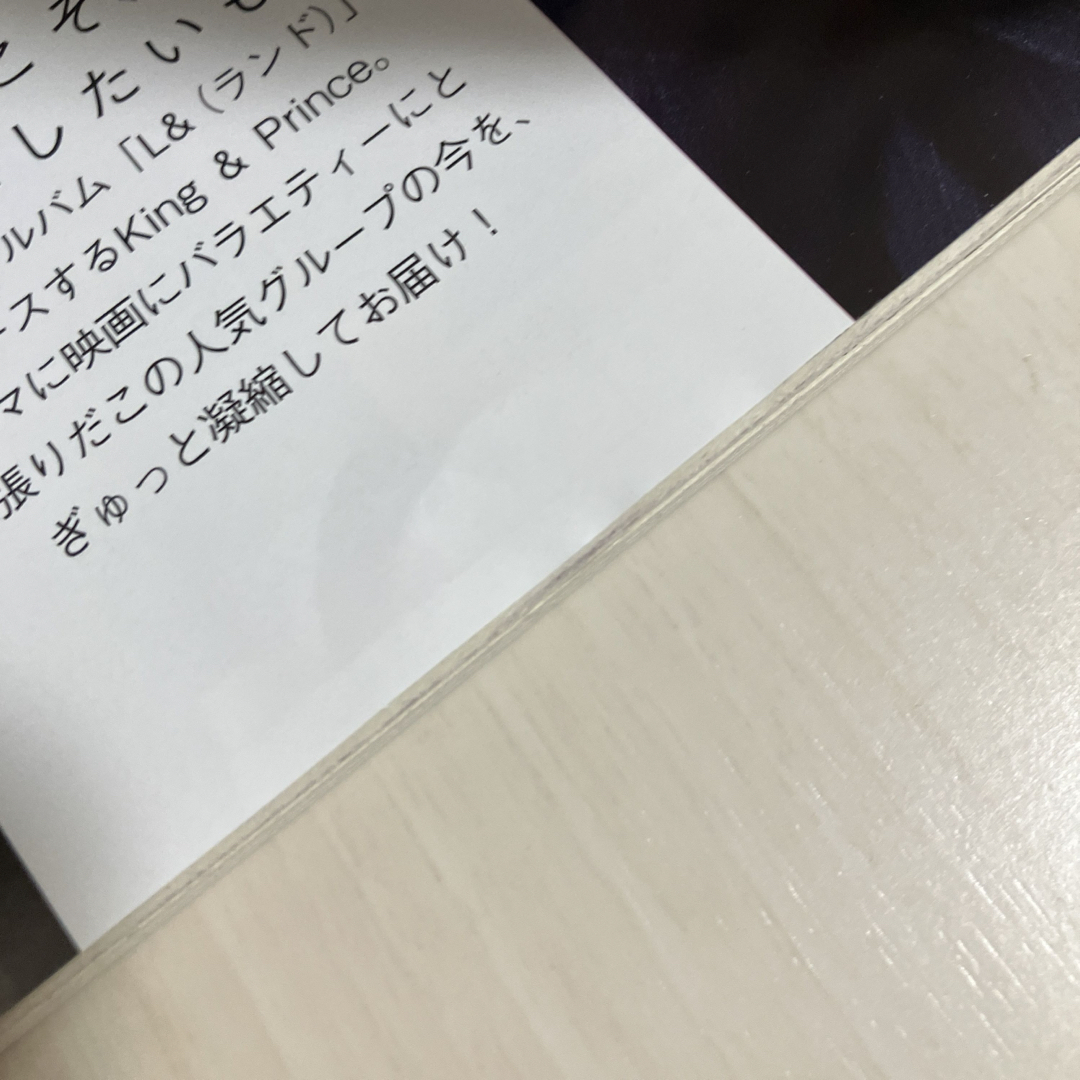 したい
ルバム「L&（ランド）」
スするKing & Prince。
マに映画にバラエティーにと
張りだこの人気グループの今を、
ぎゅっと凝縮してお届け！